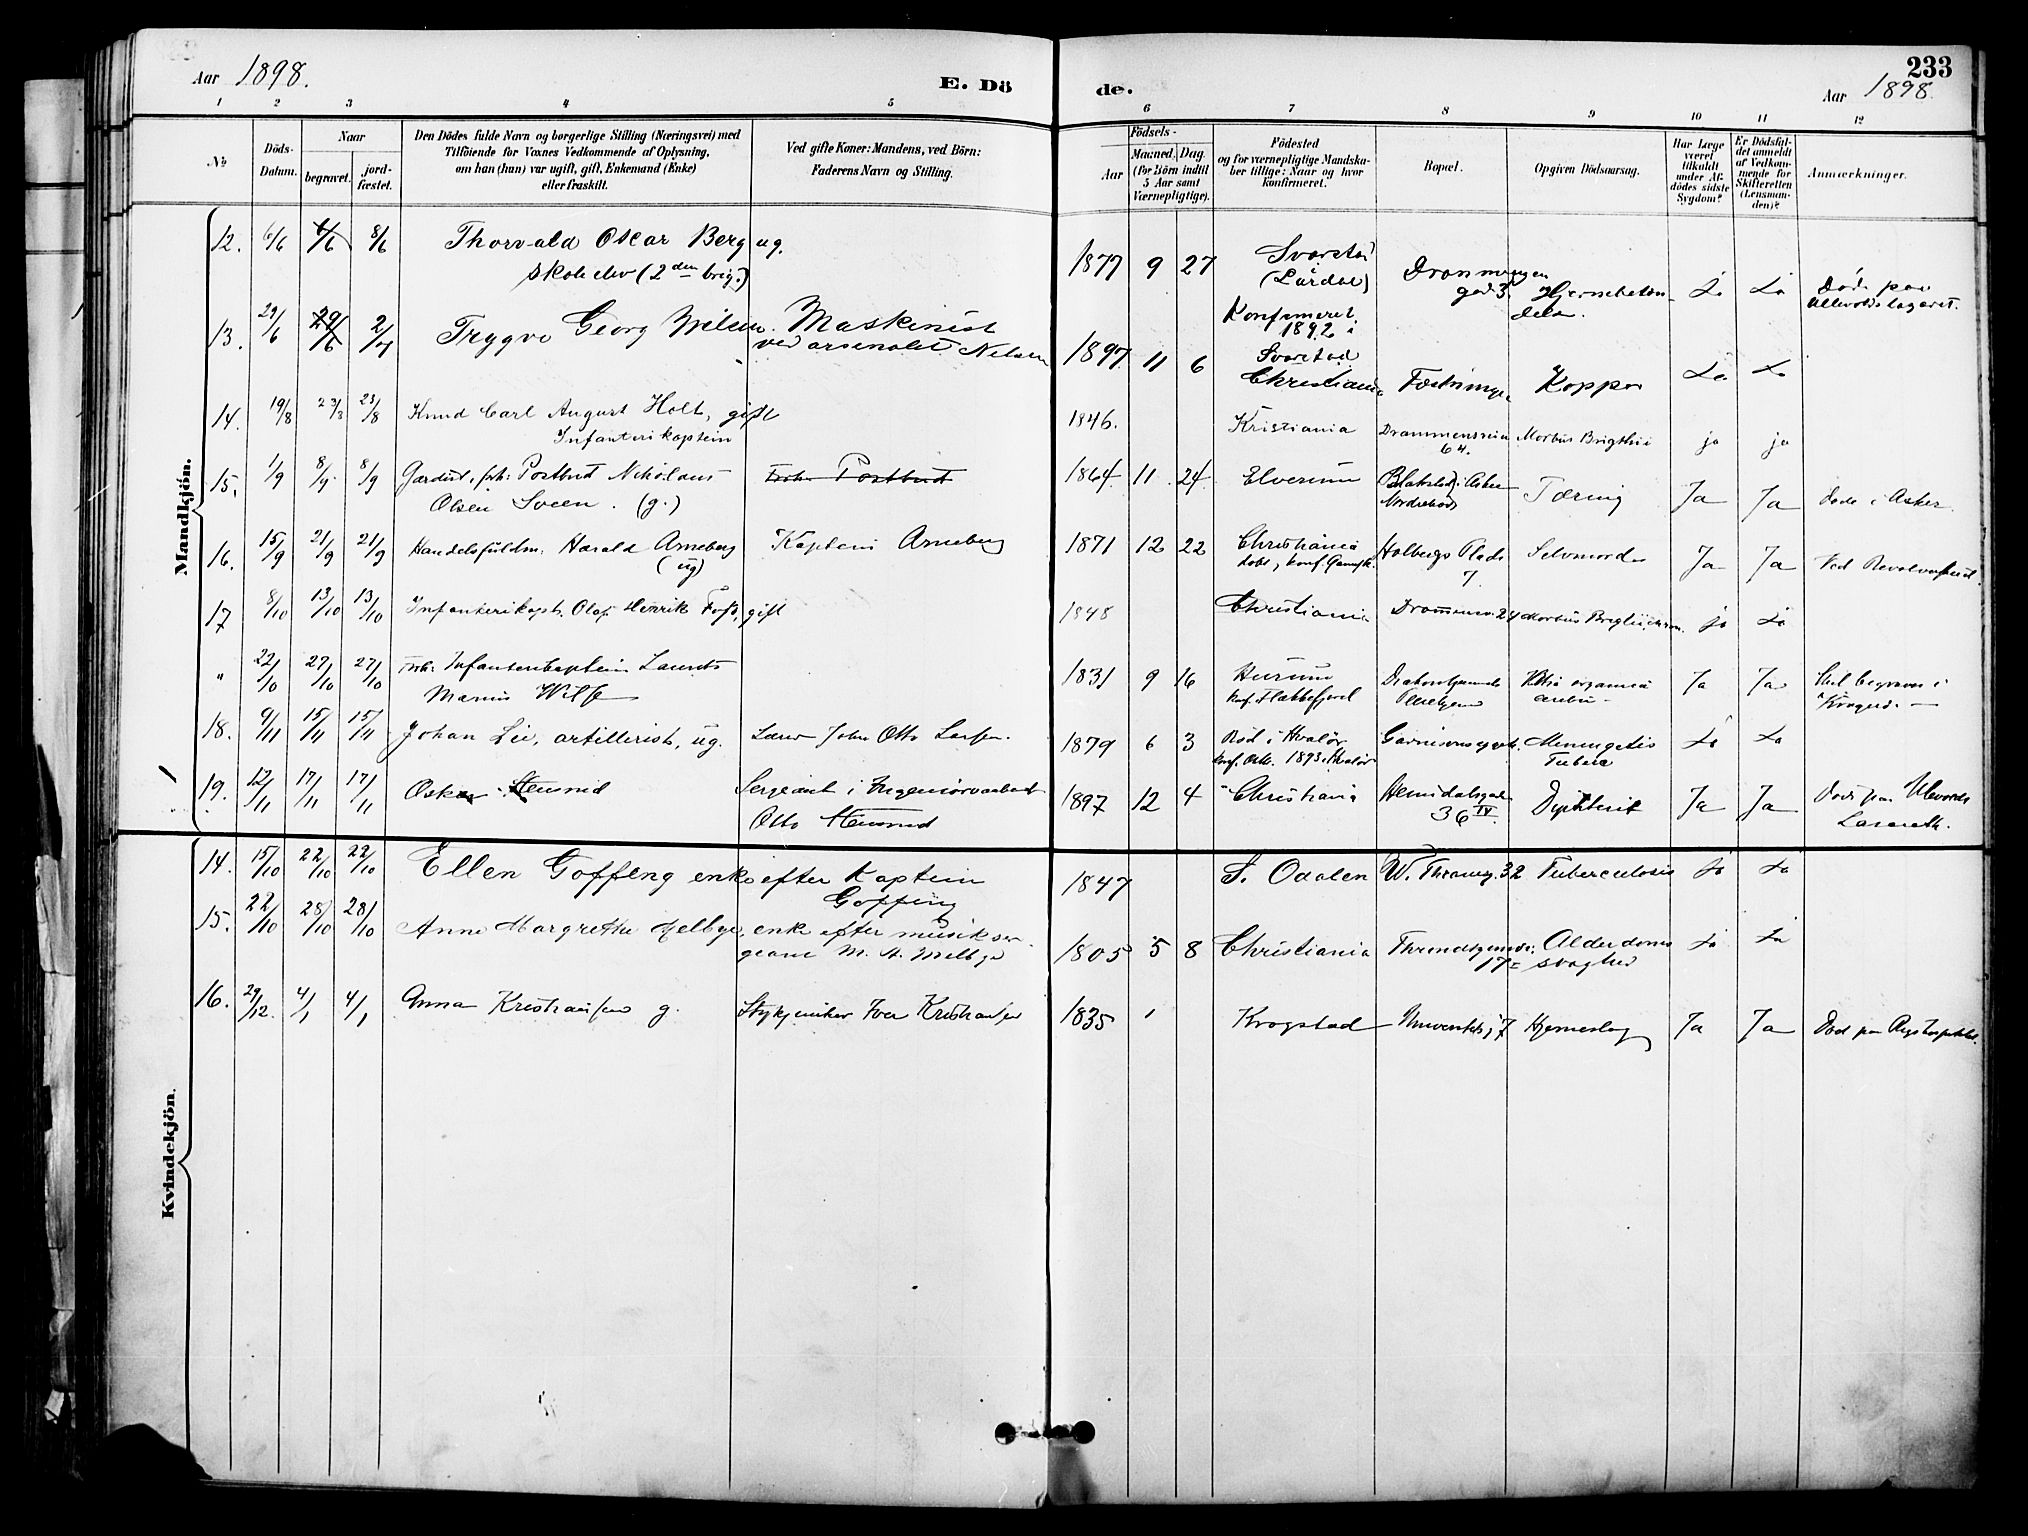 Aar 1898.
E. Dö
de.
233
Aar 1898.
1 2 3 4 5 6 7 8 9 10 11 12
No
Döds-Datum.
Naar
begravet.
jord-fæstet.
Den Dödes fulde Navn og borgerlige Stilling (Næringsvei) med
Tilföiende for Voxnes Vedkommende af Oplysning,
om han (hun) var ugift, gift, Enkemand (Enke)
eller fraskilt.
Ved gifte Koner: Mandens, ved Börn:
Faderens Navn og Stilling.
Födsels-
Aar
Maaned. Dag.
(for Börn indtil
5 Aar samt
Værnepligtige).
Födested
og for værnepligtige Mandska-
ber tillige: Naar og hvor
konfirmeret.
Bopæl.
Opgiven Dödsaarsag.
Har Læge
været
tilkaldt
under Af-
dödes sidste
Sygdom?
Er Dödsfal-
det anmeldt
af Vedkom-
mende for
Skifteretten
(Lensman-
den)?
Anmærkninger.
Mandkjön.
12. 6/6 6/6 8/6 Thorvald Oskar Berg ug.
skoleelev (2den brig.)
1877 9 27 Svarstad
(Lardal)
Konfirmeret
1892 i
Svarstad
Dronningen
gad 3.
Hjernebetæn
delse.
Ja Ja
Døde paa
Ullevolds lazaret.
13. 29/6 29/6 2/7 Trygve Georg Nilsen. Maskinist
ved arsenalet Nelsen
1897 11 6 Christiania Fæstningen Kopper Ja Ja
14. 19/8 23/8 23/8 Knud Carl August Holt, gift
Infanterikaptein
1846. Kristiania Drammensveien
64.
Morbus Brigthii ja ja
15. 1/9 8/9 8/9 Gardist, fhv. Postbud Nikolaus
Olsen Sveen. (g.)
Postbud
1864 11 24 Elverum Blakstad i Asker
Tæring Ja Ja Døde i Asker.
16. 15/9 21/9 21/9 Handelsfuldm. Harald Arneberg
(ug)
Kaptein Arneberg
1871 12 22 Christiania
døbt, konf. Garnisk.
Holbergs Plads
7.
Selvmord Ja Ja Ved Revolverskud.
17 8/10 13/10 13/10 Infanterikapt. Olaf Henrik gift
1848 Christiania Drammensv. 24 Morbus Brigtii chron. ja Ja
" 22/10 27/10 27/10 Infanterikaptein Laurits
Marius
1831 9 16 Hurum
konf. Flækkefjord
Vitia organica
Ja Ja Skal begraves i
Kragerø.
18. 9/11 15/11 15/11 Johan Lie, artillerist, ug. Lærer John Otto Larsen.
1879 6 3 Rød i Hvalør
konf. Okt. 1893 i Hvalør
Garnisonssygeh. Meningitis
Tuberc
Ja Ja
19. 12/11 17/11 17/11 Oskar Stensrud Sergeant i Ingeniørvaabnet
Otto Stensrud
1897 12 4 Christiania Hemsdalsgade
36 IV.
Diphterit Ja Ja Døde paa Ulevords
Lazareth.
Kvindekjön.
14. 15/10 22/10 22/10 Ellen Goffeng enke efter Kaptein
Goffeng
1847 S. Odalen W. Thranesg. 32 Tuberculosis Ja Ja
15. 22/10 28/10 28/10 Anne Margrethe Melbye, enke efter musikser-
geant M. A. Melbye
1805 5 8 Christiania Throndhjemsv.
17
Alderdoms
svaghed
Ja Ja
16. 29/12. 4/1 4/1 Anna Kristiansen g. Stykjunker Iver Kristiansen
1835 1 Krogstad Universitetsg. 7 Hjerneslag Ja Ja Død paa Rigshospitalet.